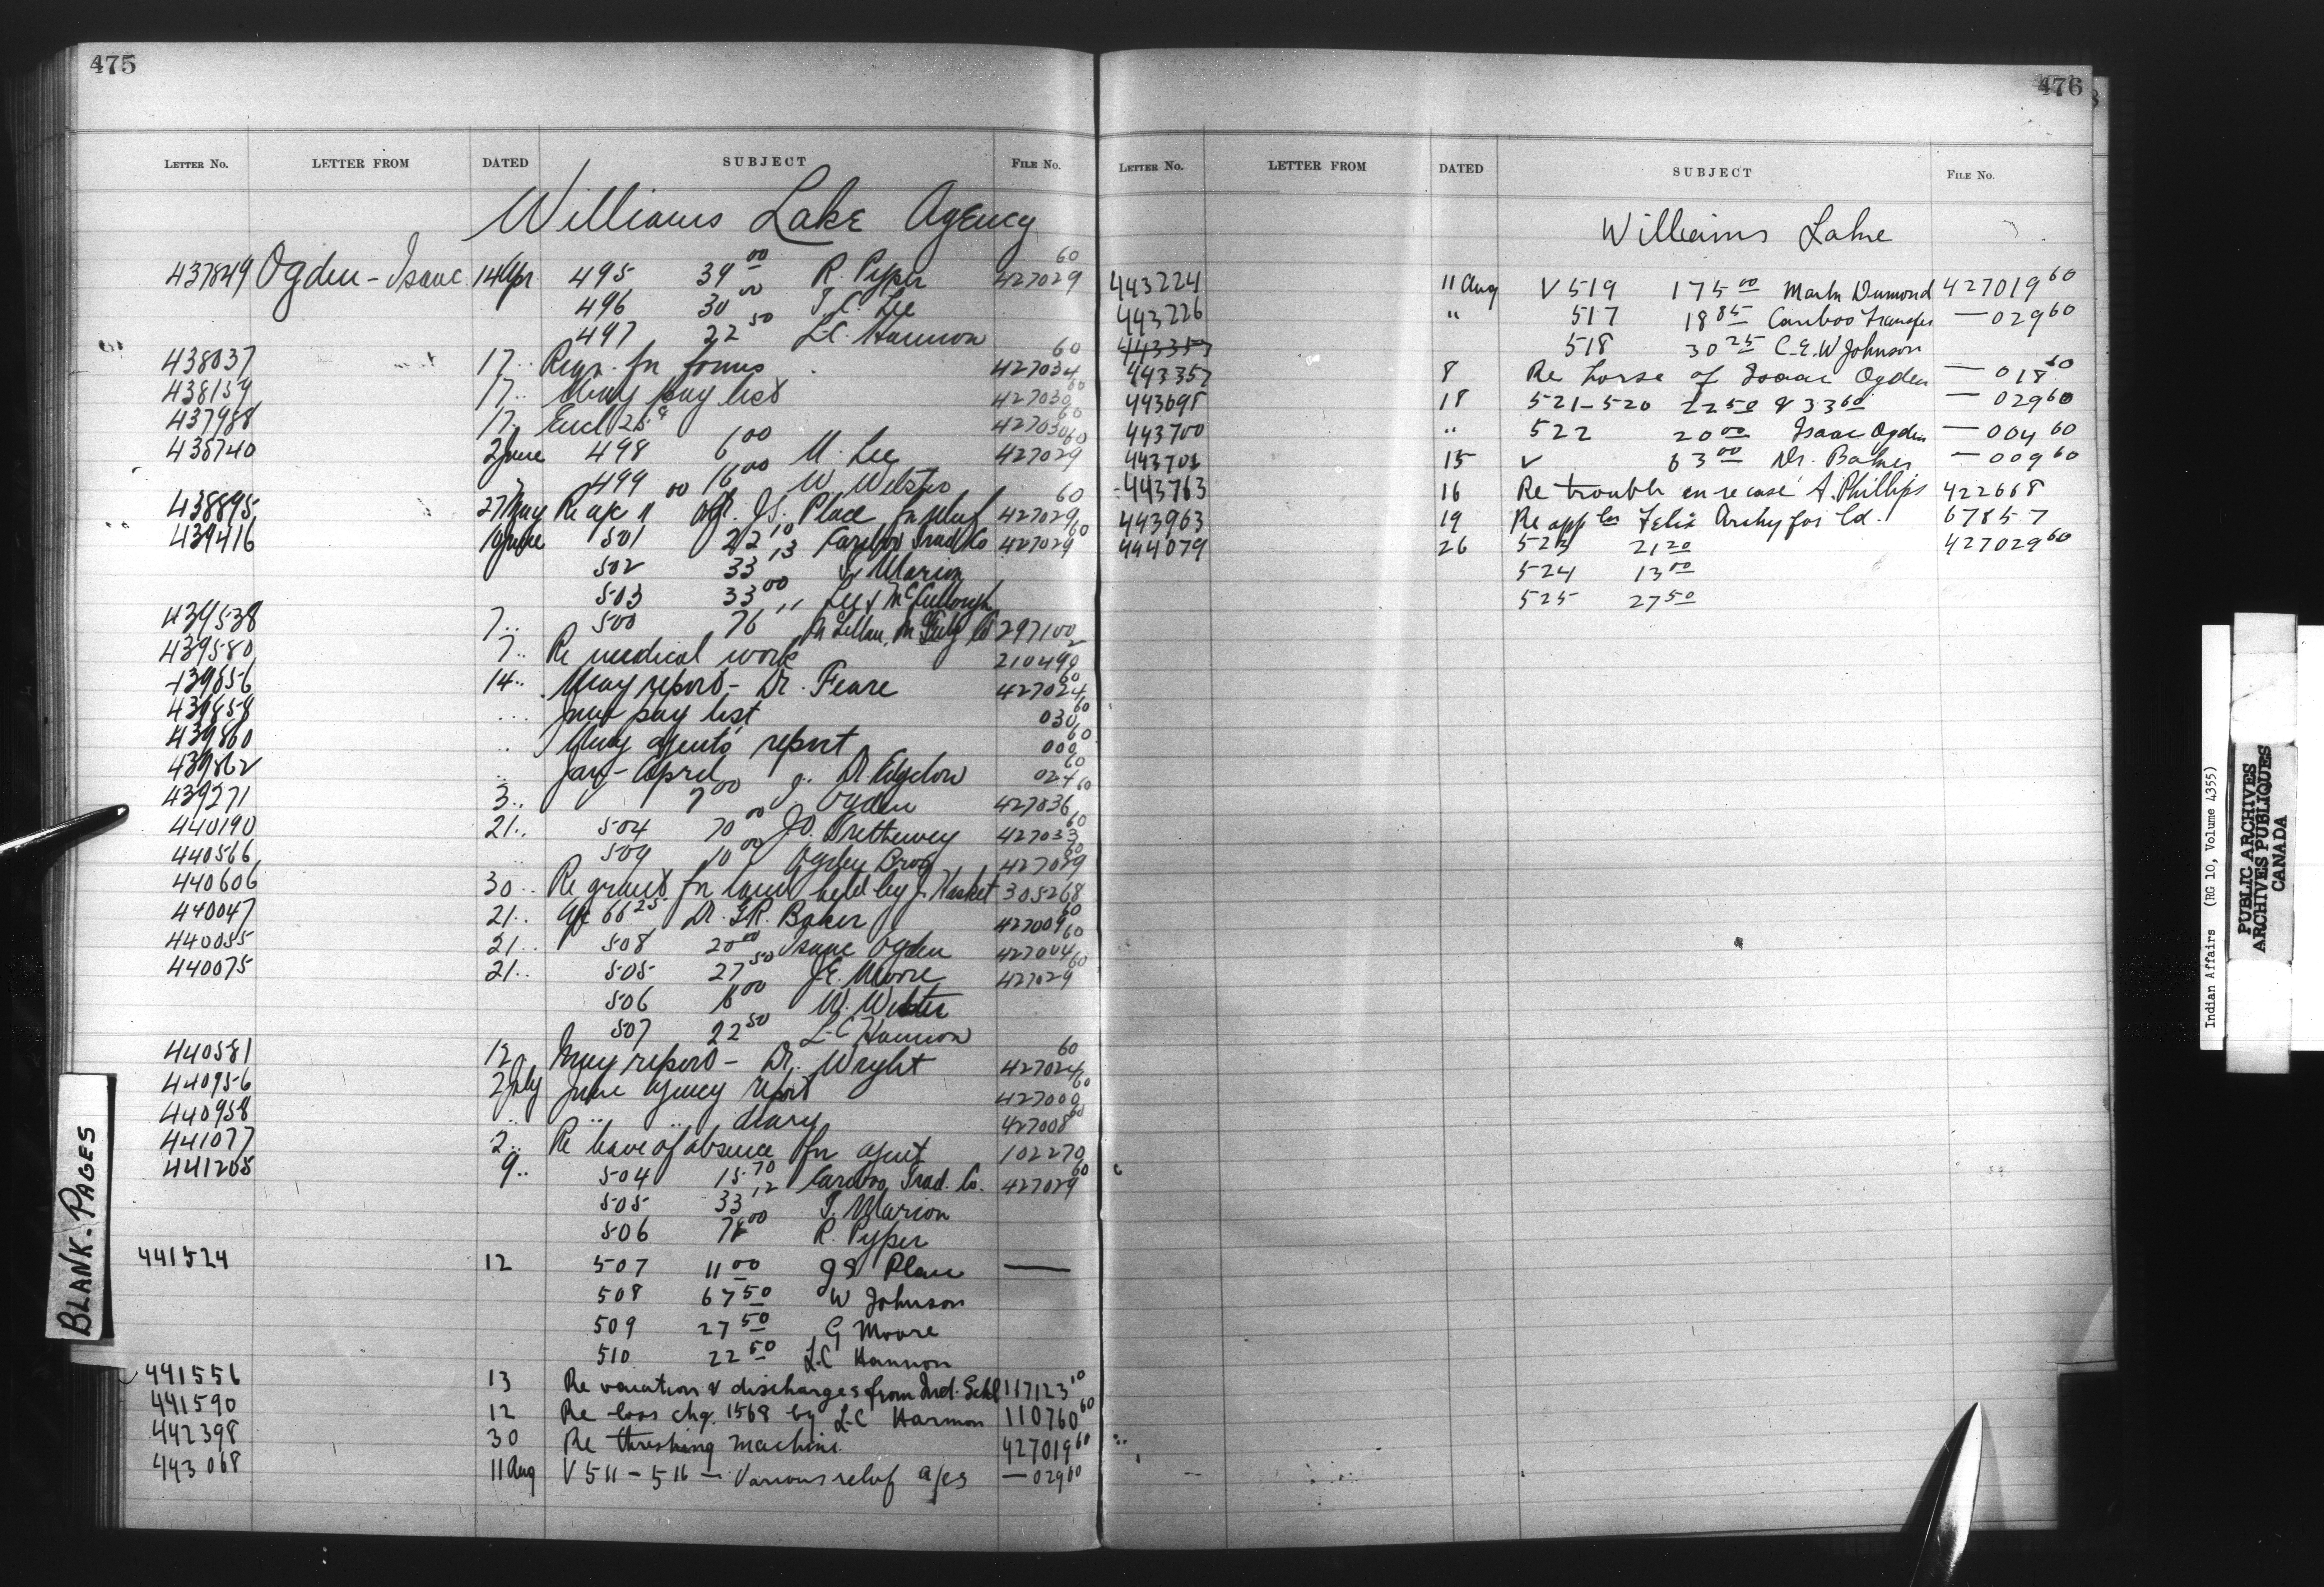 475
LETTER No. LETTER FROM DATED SUBJECT FILE No.
Williams Lake Agency
437849 Ogden - Isaac 14 Apr 495 39 00 R. Pyper 427029 60
496 30 00 T.C. Lee
497 22 50 L.C. Hannon
438037 17 .. Reqn. for forms 427034 60
438159 17 .. May pay list 427030 60
437988 17 .. Encl 427030 60
438740 2 June 498 6 00 Lee 427029 60
499 16 00 W. Webster
438895 27 May Re a/c J.S. Place for relief 427029 60
439416 June 501 22 10 Cariboo Trad. Co 427029 60
502 33 13 Marion
503 33 00 Lee & McCullough
439538 7 .. 500 76 297100
439580 7 .. Re medical work 210490
439856 14 .. May report - Dr. Feare 427024 60
439858 ... pay list 030 60
439860 .. May agents report 000 60
439862 .. Jan - April Dr 024 60
439271 3 .. 7 00 Ogden 427036 60
440190 21 .. 504 70 00 J.D. Trethewey 427033 60
440566 .. 509 10 00 Bros 427029 60
440606 30 .. Re grant for land held by J. Hasket 305268
440047 21 .. a/c 66 25 Dr. G.R. Baker 427009 60
440055 21 .. 508 20 00 Isaac Ogden 427004 60
440075 21 .. 505 27 50 J.E. Moore 427029 60
506 8 00 W. Webster
507 22 50 L-C Hannon
440581 12 May report - Dr. Wright 427024 60
440956 2 July June agency report 427000 60
440958 .. .. .. diary 427008 60
441077 2 .. Re leave of absence for agent 102270
441205 9 .. 504 15.70 Cariboo Trad. Co. 427029 60
505 33 12 T. Marion
506 78 00 R. Pyper
441524 12 507 11 00 J S Place —
508 67 50 W Johnson
509 27 50 G Moore
510 22 50 L.C Hannon
441556 13 Re vacation & discharges from Ind. Schl 117123 10
441590 12 Re loss chq. 1568 by L-C Harmon 110760 60
442398 30 Re threshing machine 427019 60
443068 11 Aug V 511 - 516 — Various relief a/cs — 029 60
476
LETTER No. LETTER FROM DATED SUBJECT FILE No.
Williams Lake
443224 11 Aug V 519 175 00 Martin Dumond 427019 60
443226 " 517 18 85 Cariboo Transfer — 029 60
443357 518 30 25 C.E.W Johnson
443357 8 Re horse of Isaac Ogden — 018 60
443698 18 521-520 22 50 & 33 60 — 029 60
443700 " 522 20 00 Isaac Ogden — 004 60
443701 15 V 63 00 Dr. Baker — 009 60
443763 16 Re trouble en re case A. Phillips 422668
443963 19 Re appln Felix Archy for ld. 67857
444079 26 523 21 20 427029 60
524 13 00
525 27 50
BLANK-PAGES
Indian Affairs (RG 10, Volume 4355)
PUBLIC ARCHIVES
ARCHIVES PUBLIQUES
CANADA